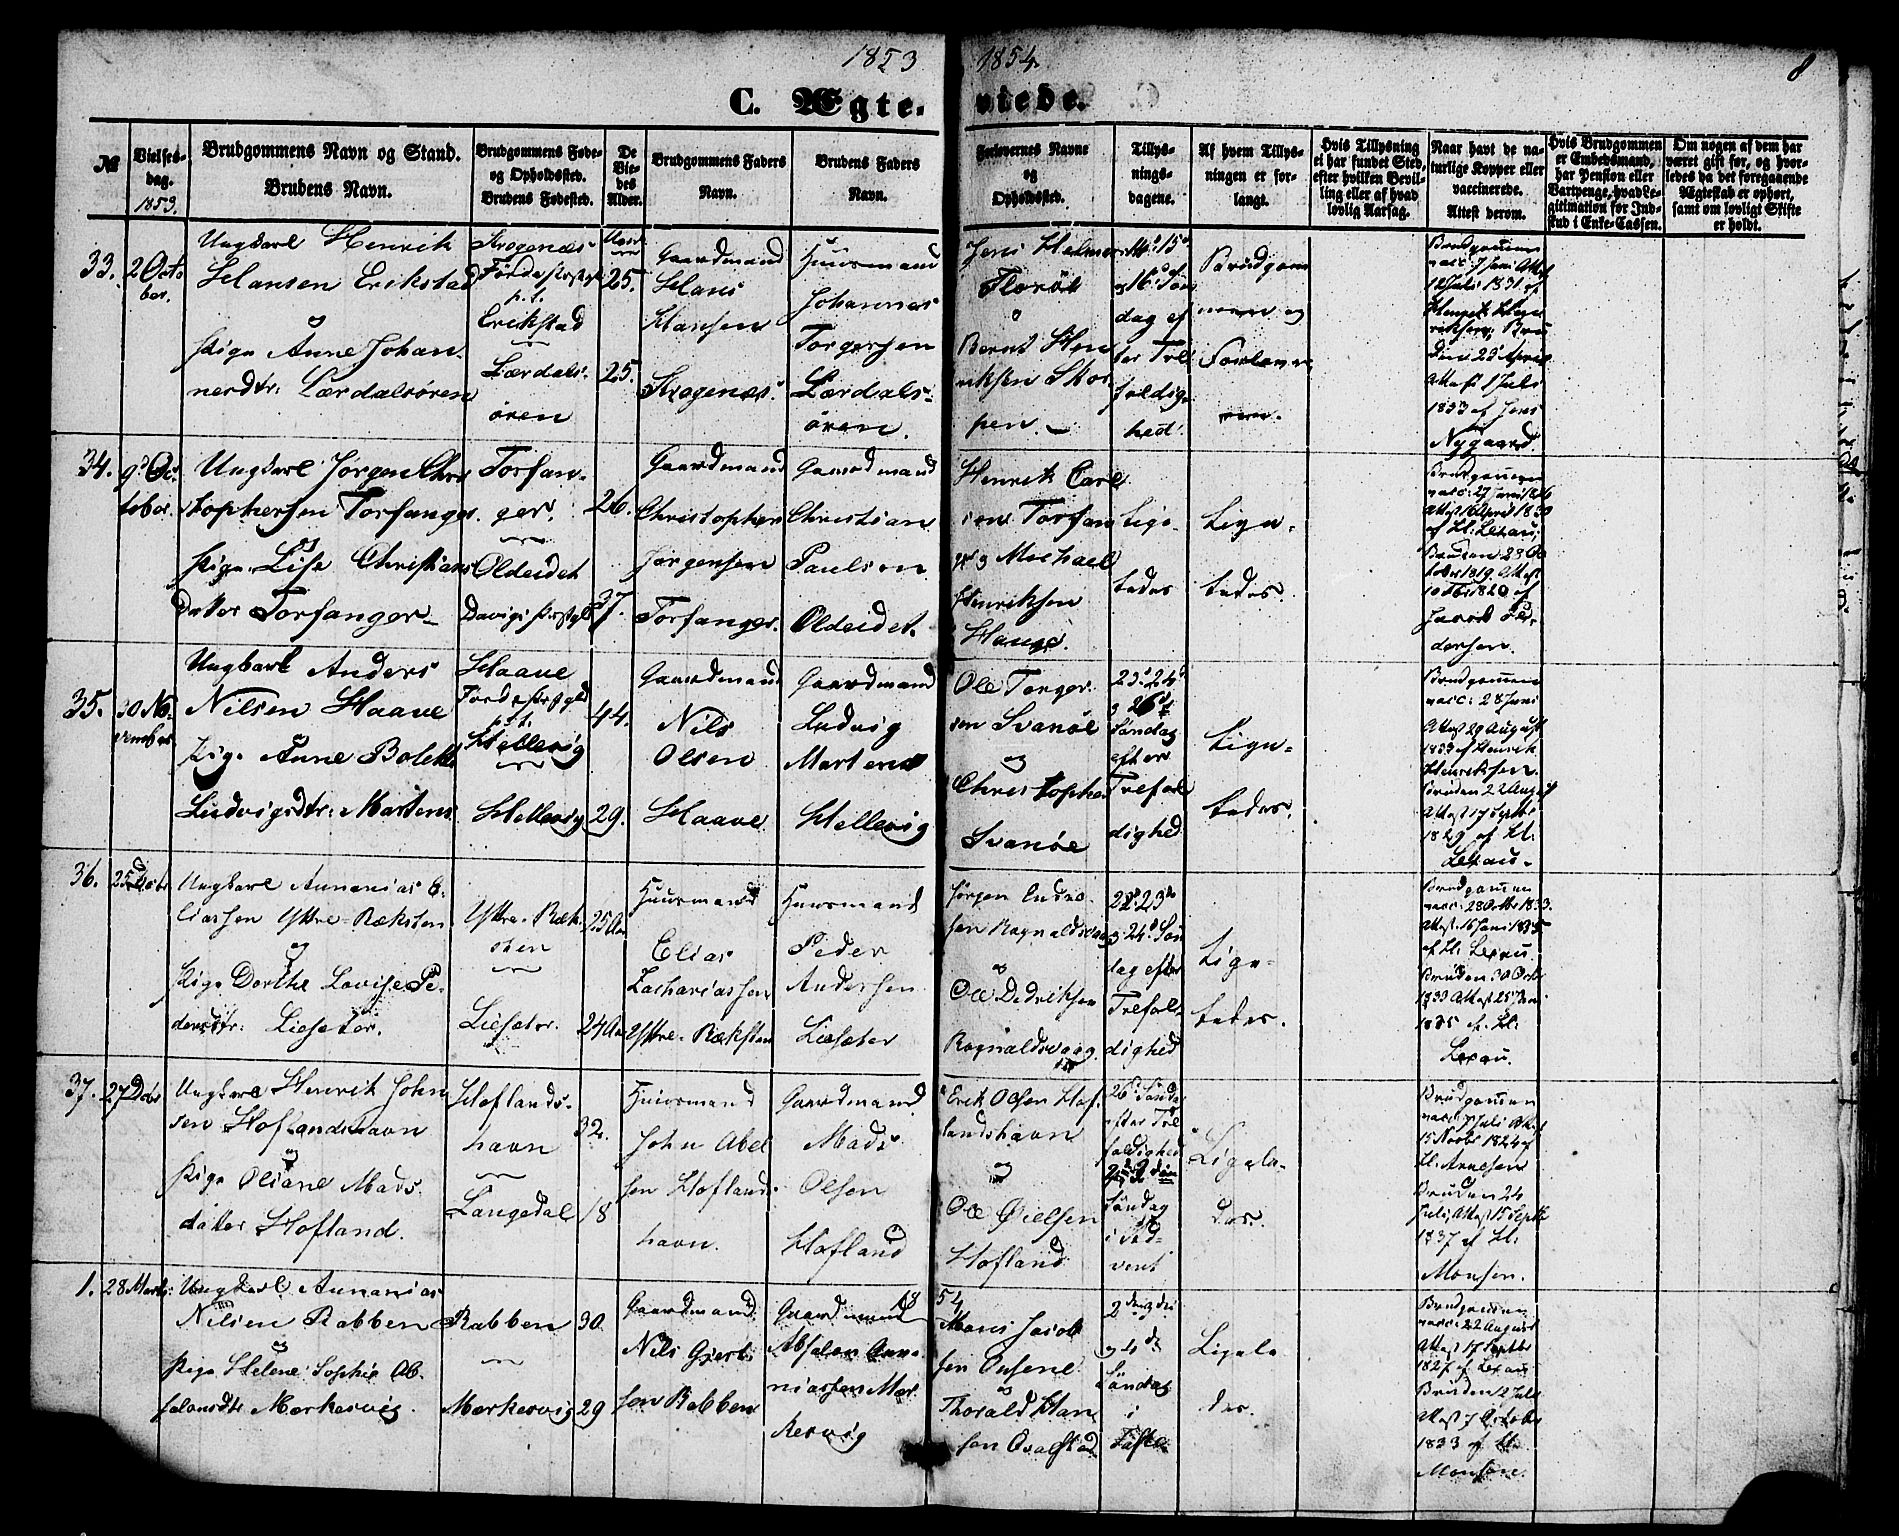 1853
1854.
8
C. Ægte-
viede.
№
Vielses-
dag.
1853.
Brudgommens Navn og Stand.
Brudens Navn.
Brudgommens Føde-
og Opholdssted.
Brudens Fødested.
De
Vie-
des
Alder.
Brudgommens Faders
Navn.
Brudens Faders
Navn.
Forlovernes Navne
og
Opholdssted.
Tillys-
nings-
dagene.
Af hvem Tillys-
ningen er for-
langt.
Hvis Tillysning
ei har fundet Sted,
efter hvilken Bevil-
ling eller af hvad
lovlig Aarsag.
Naar havt de na-
turlige Kopper eller
vaccinerede.
Attest derom.
Hvis Brudgommen
er Embedsmand,
har Pension eller
Vartpenge, hvad Le-
gitimation for Ind-
skud i Enke-Cassen.
Om nogen af dem har
været gift før, og hvor-
ledes da det foregaaende
Ægteskab er ophørt,
samt om lovligt Skifte
er holdt.
33.
2 Octo
ber.
Ungkarl Henrik
Hansen Erikstad
og
Pige Anne Johan
nesdtr: Lærdalsøren
Krogenæs
Førde Præstgd
p.t.
Erikstad
Lærdals-
øren
25.
25.
Gaardmand
Hans
Hansen
Krogenæs.
Huusmand
Johannes
Torgersen
Lærdals-
øren.
Jens Helmer
Florøe
o
Bernt Hen
riksen Skor
pen.
15d
og 16d Søn
dag ef
ter Tre
foldig
hed.
Brudgom
men og
Forlover
ne.
Brudgommen
vacc: 7 Juni Attest
12 Juli 1831 af
Bru
den 25 April
Attest 1 Juli
1833 af Jens
Nygaard.
34.
9d Oc
tober.
Ungkarl Jørgen Chri
stophersen Torfanger
og
Pige Lise Christians
datter Torfanger
Torfan-
ger.
Oldeidet
Davigs Præstgld
26.
37.
Gaardmand
Christopher
Jørgensen
Torfanger.
Gaardmand
Christian
Paulsen
Oldeidet.
Henrik Carl
sen Torfan
ger og Michael
Henriksen
Hauge.
Lige-
ledes
Lige-
ledes.
Brudgommen
vacc: 27 Juni 1826
Attest 16 April 1830
af Kl: Lexau;
Bruden 23 Oc
tober 1819. Attest
10 Febr 1820 af
Jacob Pe
dersen.
35.
20 No-
vember
Ungkarl Anders
Nilsen Haave
Pige Anne Bolette
Ludvigsdtr: Martens
Haave
Førde Præstgld
p.t.
Hellevig
Hellevig
44.
29.
Gaardmand
Nils
Olsen
Haave
Gaardmand
Ludvig
Martens
Hellevig
Ole Torger-
sen Svanøe
og
Christopher
Svanøe
23d 24d
og 26d
Søndag
efter
Trefol
dighed
Lige-
ledes.
Brudgommen
vacc: 28 Juni
Attest 29 August
1833 af Henrik
Henriksen.
Bruden 22 August
Attest 17 Septbr
1829 af Kl:
Lexau.
36.
25 Decbr
Ungkarl Annanias E-
liassen Yttre-Ræksten
og
Pige Dorthe Lovise Pe-
dersdtr: Liesæter.
Yttre-Ræk-
sten
Liesæter.
25 Aar
24 Aar
Huusmand
Elias
Zachariassen
Yttre-Ræksten
Huusmand
Peder
Andersen
Liesæter
Jørgen Endre-
sen Rognaldsvaag
og
Ole Dedriksen
Rognaldsvaag
22d 23d
og 24d Søn
dag efter
Trefol-
dighed
Lige-
ledes.
Brudgommen
vacc: 28 Octbr 1833.
Attest 16 Juni 1835
af Kl: Lexau
Bruden 30 Octbr
1833 Attest 25 Jan
1835 af Kl:
Lexau.
37.
27 Decbr
Ungkarl Henrik John
sen Hoflandshavn
og
Pige Oliane Mads
datter Hofland.
Hoflands-
havn
Langedal
32.
18
Huusmand
John Abel
sen Hoflands
havn.
Gaardmand
Mads
Olsen
Hofland
Erik Olsen Hof-
landshavn
og
Ole Øielsen
Hofland
26d Søndag
efter Tre
foldighed
Søndag
i Ad-
vent
Ligele-
des.
Brudgommen
vacc: 7 Juli Attest
15 Novbr 1824 af
Kl: Arnesen
Bruden 24
Juli, Attest 15 Septbr
1837 af Kl:
Monsen.
1.
28 Marts:
Ungkarl Annanias
Nilsen Rabben
og
Pige Helene Sophie Ab-
salonsdtr Markesvig.
Rabben
Markesvig
30.
29
Gaardmand
Nils Gjert-
sen Rabben
18
Gaardmand
Absalon Anna-
niassen Mar
kesvig
54
Mons Jacob
sen
og
Thorald Han
sen Qvalstad
2den 3die
og 4de
Søndag
i
Faste
Ligele
des.
Brudgommen
vacc: 22 August
Attest 17 Septbr
1827 af Lexau
Bruden 2 Juli
Attest 7 October
1833 af Kl:
Monsen.